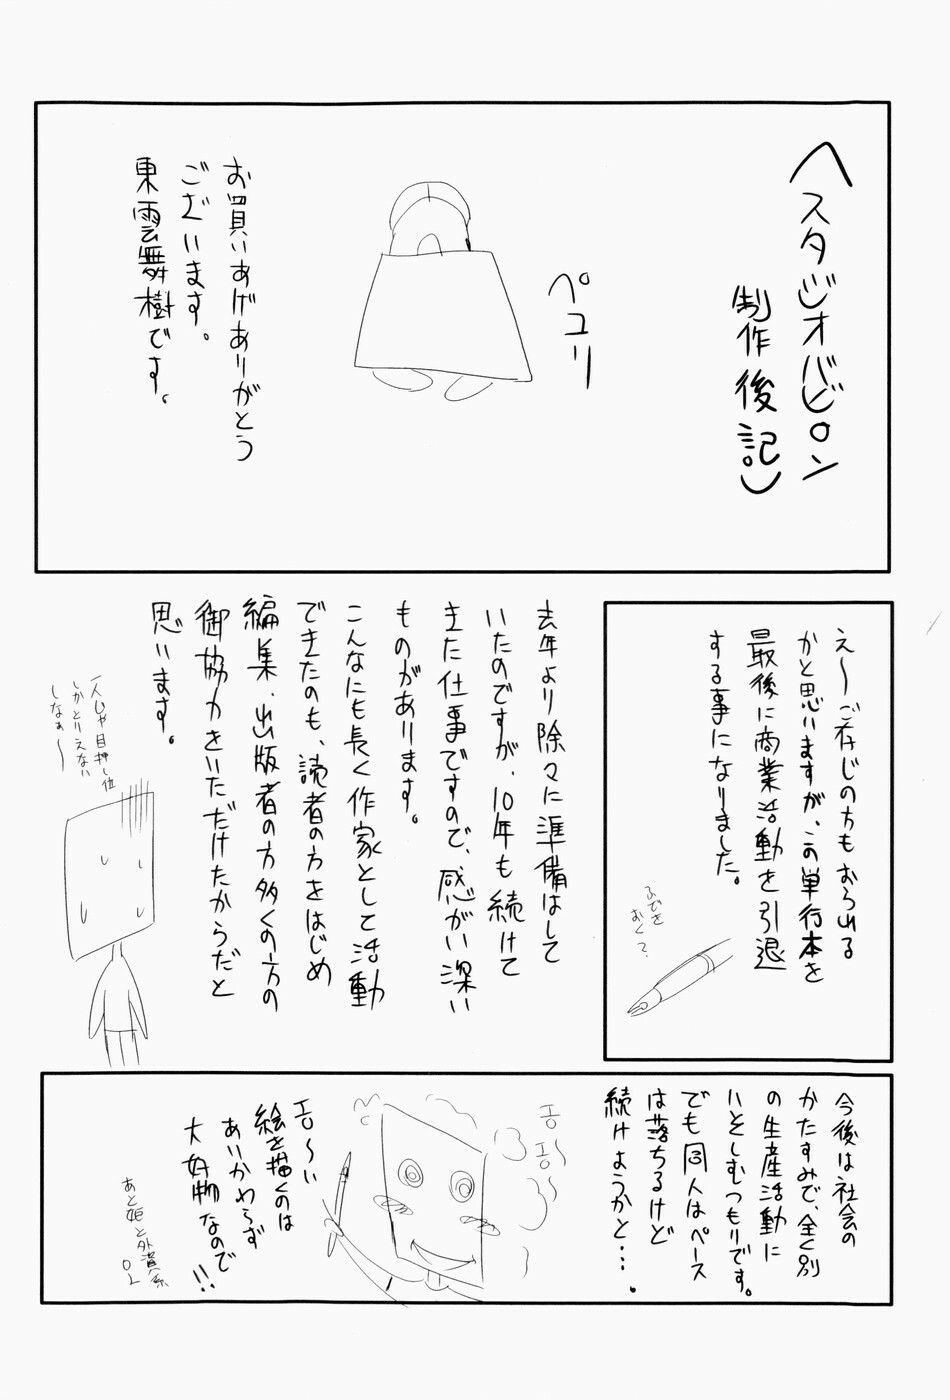 ヘスタジオバビロン
制作後記
ペコリ
お買いあげありがとう
ございます。
東雲舞樹です。
え〜ご存じの方もおられる
かと思いますが、この単行本を
最後に商業活動を引退
する事になりました。
ふでを
おく?
去年より除々に準備はして
いたのですが、10年も続けて
きた仕事ですので、感がい深い
ものがあります。
こんなにも長く作家として活動
できたのも、読者の方をはじめ
編集、出版者の方多くの方の
御協力をいただけたからだと
思います。
一人じゃ目押し位
しかとりえない
しなぁ〜
今後は社会の
かたすみで、全く別
の生産活動に
いそしむつもりです。
でも同人はペース
は落ちるけど
続けようかと…。
エロ〜い
絵を描くのは
あいかわらず
大好物なので
!!
あと姫と外資系
OL